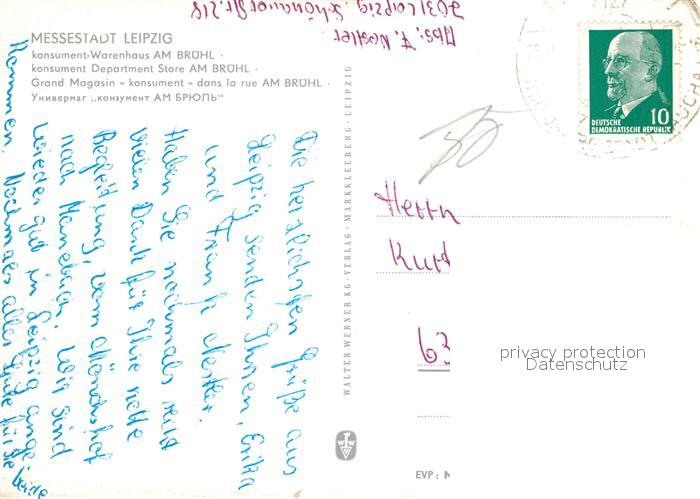 MESSESTADT LEIPZIG
konsument-Warenhaus AM BRÜHL ·
konsument Department Store AM BRÜHL ·
Grand Magasin « konsument » dans la rue AM BRÜHL ·
Универмаг „консумент АМ БРЮЛЬ“
Die herzlichsten Grüße aus
Leipzig senden Ihnen, Erika
und Frank Nestler.
Haben Sie nochmals recht
vielen Dank für Ihre nette
Begleitung, vom Mönchshof
nach Manebach. Wir sind
wieder gut in Leipzig ange-
kommen. Nochmals alles Gute für Sie
Abs. F. Nestler
7031 Leipzig, Schönauerstr. 218
WALTER WERNER KG · VERLAG · MARKKLEEBERG · LEIPZIG
DEUTSCHE
DEMOKRATISCHE REPUBLIK
10
Herrn
Kurt
63
privacy protection
Datenschutz
EVP: